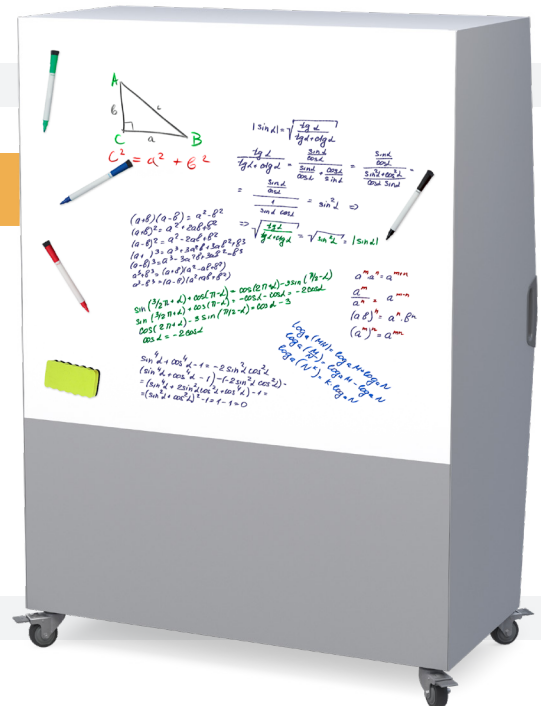 A
C
B
a
c² = a² + b²
|sin α| = √(tg α / (tg α + ctg α))
tg α / (tg α + ctg α) = (sin α / cos α) / (sin α / cos α + cos α / sin α) = (sin α / cos α) / ((sin²α + cos²α) / (cos α sin α)) =
= (sin α / cos α) / (1 / (sin α cos α)) = sin²α ⇒
⇒ √(tg α / (tg α + ctg α)) = √(sin²α) = |sin α|
(a+b)(a-b) = a²-b²
(a+b)² = a²+2ab+b²
(a-b)² = a²-2ab+b²
a³+b³ = (a+b)(a²-ab+b²)
a³-b³ = (a-b)(a²+ab+b²)
sin (3/2π+α) + cos(π-α) + cos(2π+α) - 3 sin (π/2-α)
sin (3/2π+α) + cos(π-α) = -cos α - cos α = -2cos α
cos (2π+α) - 3 sin (π/2-α) = cos α - 3
cos α = -2cos α
aᵐ·aⁿ = aᵐ⁺ⁿ
aᵐ/aⁿ = aᵐ⁻ⁿ
(ab)ⁿ = aⁿ·bⁿ
(aᵐ)ⁿ = aᵐⁿ
sin⁴α + cos⁴α - 1 = -2 sin²α cos²α
(sin⁴α + cos⁴α - 1) - (-2 sin²α cos²α) =
= (sin⁴α + 2sin²α cos²α + cos⁴α) - 1 =
= (sin²α + cos²α)² - 1 = 1 - 1 = 0
logₐ(MN) = logₐM + logₐN
logₐ(M/N) = logₐM - logₐN
logₐ(Nᵏ) = k·logₐN